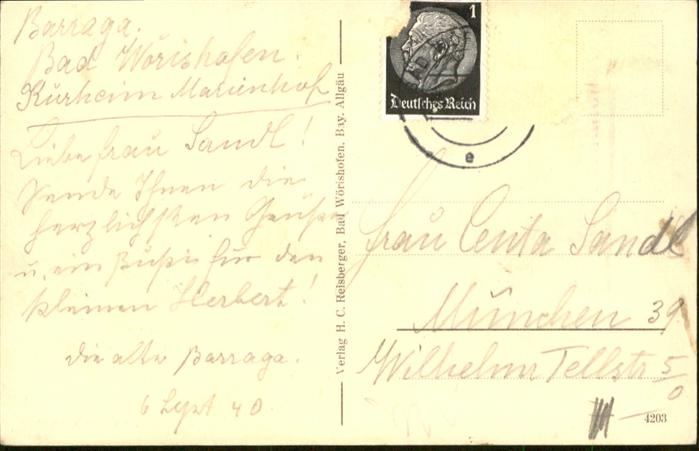 Barraga.
Bad Wörishofen.
Kurheim Marienhof
Liebe Frau Sandl!
Sende Ihnen die
herzlichsten Grüße
u. ein Bußi für den
kleinen Herbert!
die alte Barraga.
6 Sept 40
Verlag H. C. Reisberger, Bad Wörishofen, Bay. Allgäu
1
Deutsches Reich
e
Frau Centa Sandl
München 39
Wilhelm Tellstr 5/0
III
4203